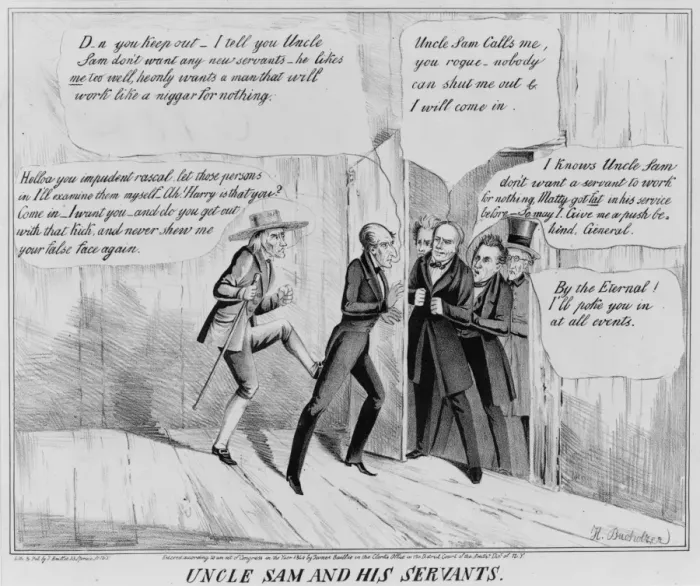 D_n you keep out _ I tell you Uncle
Sam don't want any new servants _ he likes
me too well, he only wants a man that will
work like a niggar for nothing.
Uncle Sam Calls me,
you rogue _ nobody
can shut me out &
I will come in .
Helloa you impudent rascal, let those persons
in I'll examine them myself. Ah! Harry is that you?
Come in _ I want you _ and do you get out
with that kick, and never shew me
your false face again.
I Knows Uncle Sam
don't want a servant to work
for nothing, Matty got fat in his service
before _ So may I. Give me a push be-
hind, General.
By the Eternal !
I'll poke you in
at all events.
H. Bucholzer
Entered according to an act of Congress in the Year by James Baillie in the Clerks Office of the District Court of the South.n Dist. of N.Y.
UNCLE SAM AND HIS SERVANTS.